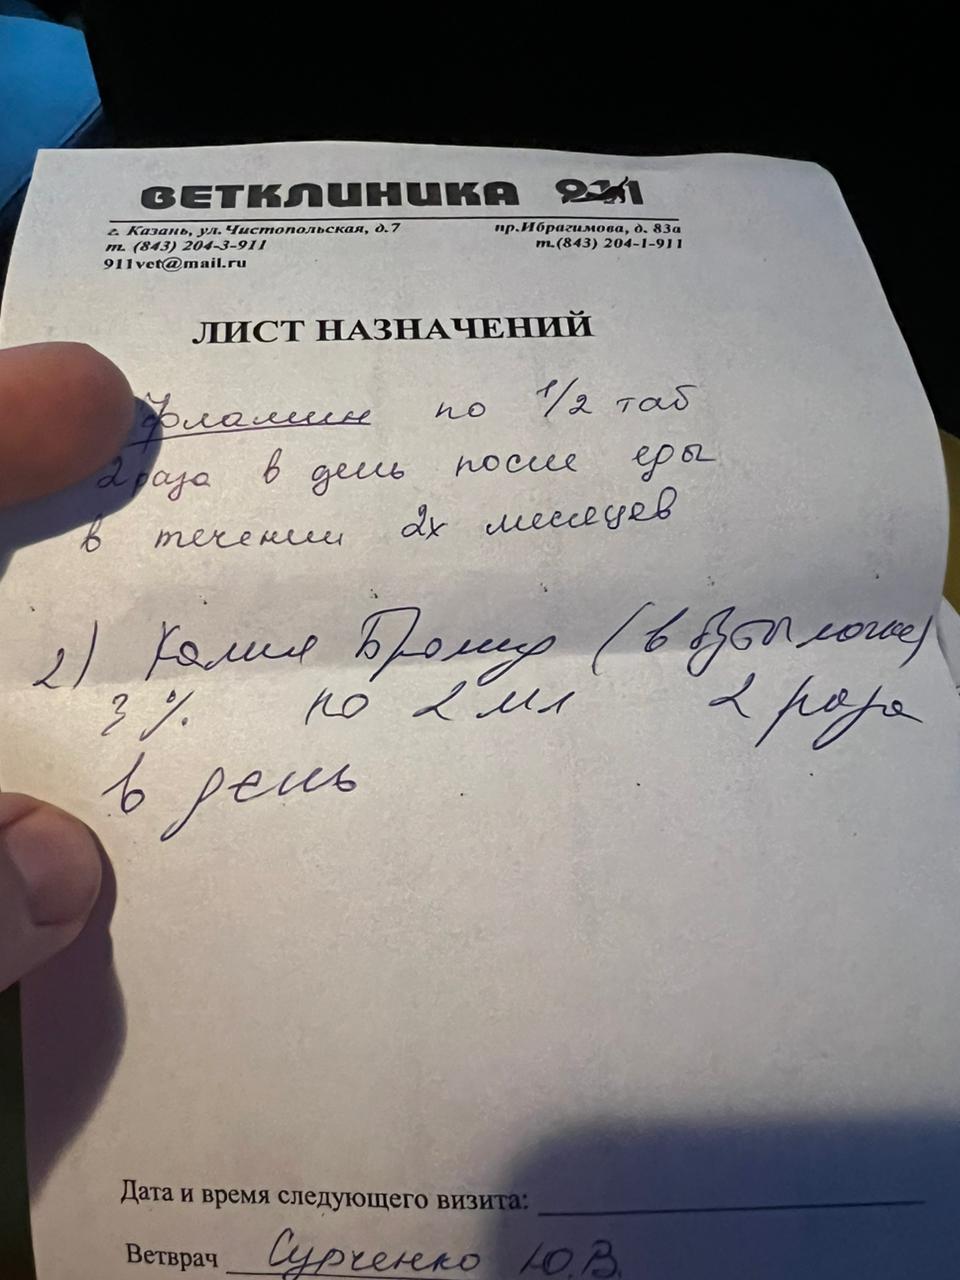 ВЕТКЛИНИКА 911
г. Казань, ул. Чистопольская, д.7 пр.Ибрагимова, д. 83а
т. (843) 204-3-911 т.(843) 204-1-911
911vet@mail.ru
ЛИСТ НАЗНАЧЕНИЙ
Фламин по 1/2 таб
2 раза в день после еды
в течении 2х месяцев
2) Калия Бромид (в бутылочке)
3% по 2 мл 2 раза
в день
Дата и время следующего визита:
Ветврач Сурченко Ю.В.